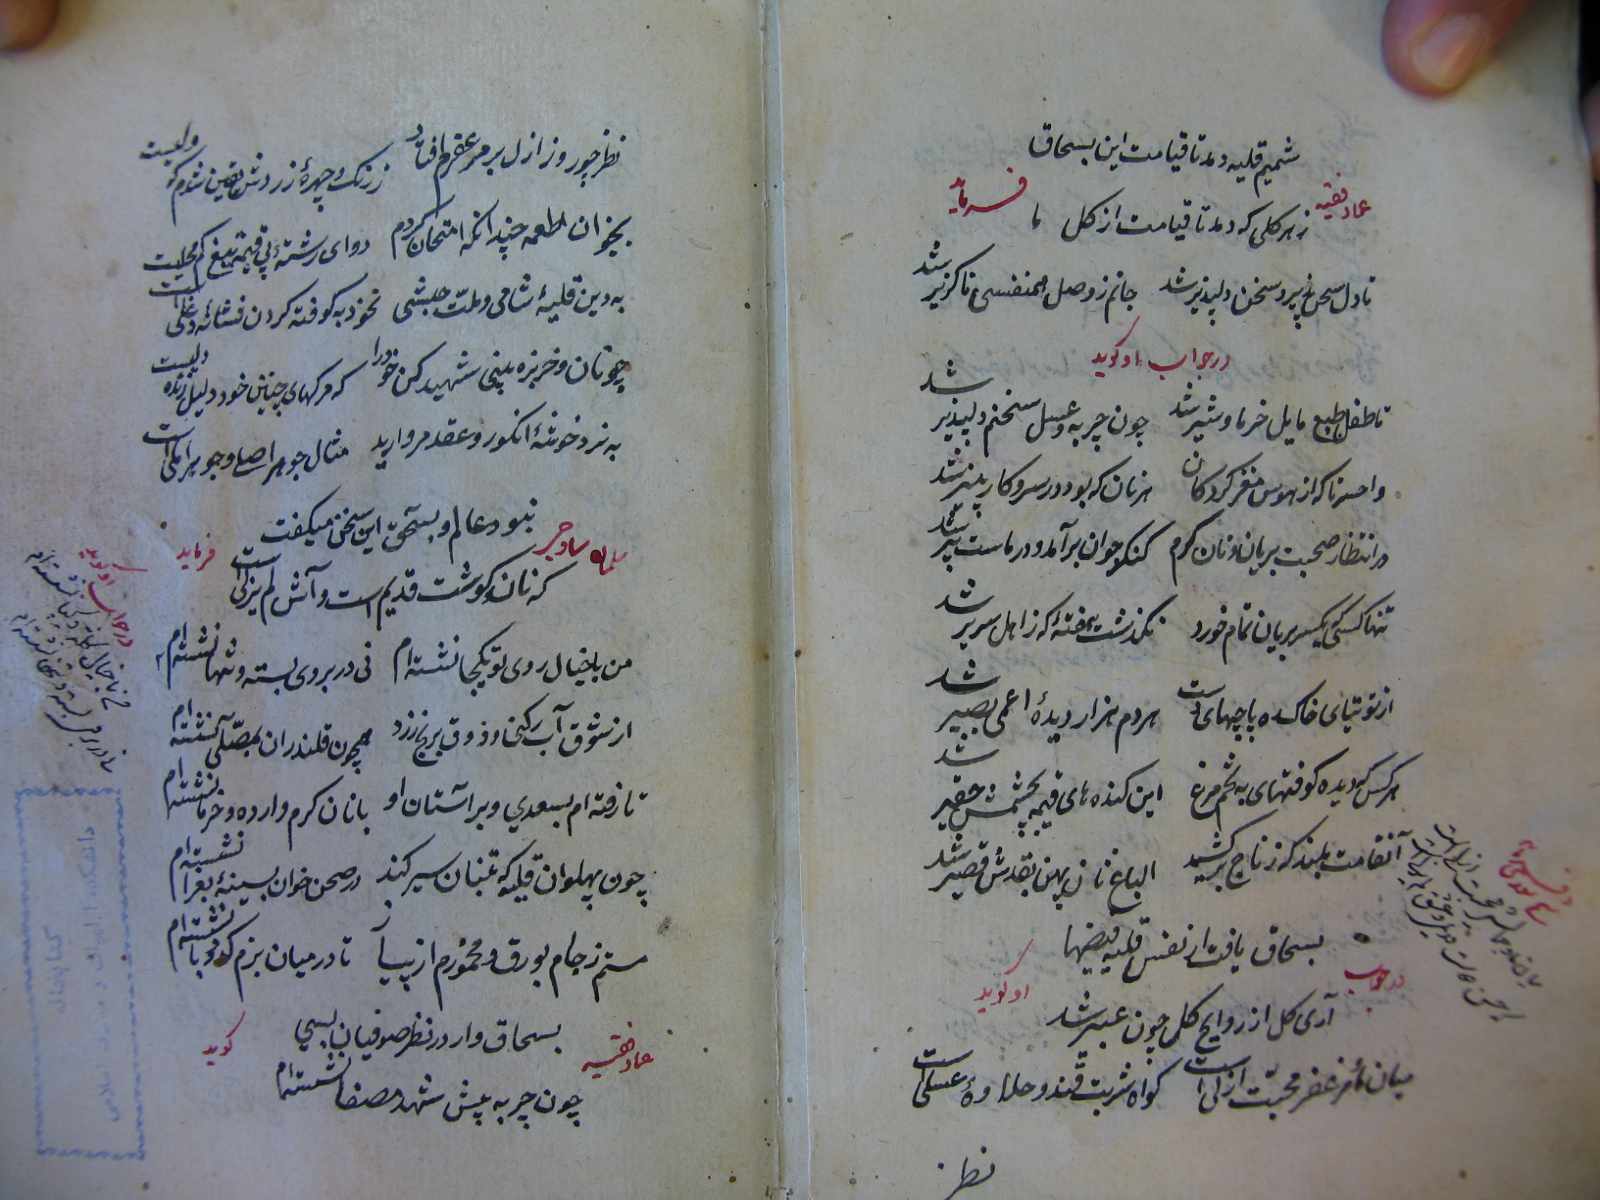 شمیم قلیه دمد تا قیامت این بسحاق
عماد فقیه فرماید
ز هر کلی که دمد تا قیامت از کل ما
تا دل سخن پذیر و سخن دلپذیر شد جانم ز وصل همنفسی ناکزیر شد
در جواب او کوید
تا طفل طبع مایل خرما و شیر شد چون چربه و عسل سخنم دلپذیر شد
واحسرتا که از هوس مغز کردکان هر نان که بود در سر و کار پنیر شد
در انتظار صحبت بریان و نان کرم کنکر جوان برآمد و در ماست پیر شد
تنها کسی که یکسر بریان تمام خورد نکذشت هفته که ز اهل سریر شد
از توتیای خاک ده پاچهای تست هر دم هزار دیدهٔ اعمی بصیر شد
هر کس که دیده کوفتهای به تخم مرغ این کنده های قیمه بچشمش حقیر شد
آن قامت بلند که زناج برکشید الباغ نان پهن بقدش قصیر شد
بسحاق یافت از نفس قلیه فیضها
در جواب او کوید
آری کل از روایح کل چون عبیر شد
میان ما و مزعفر محبت ازلی است کواه شربت قند و حلاوهٔ عسلی است
نظر
نظر چو روز ازل بر مزعفرم افتاد ز رنک و چهرهٔ زردش یقین شدم که ولیست
بخوان اطعمه چندانکه امتحان کردم دوای رشتهٔ بی قیمه تیغ کم محلیست
به دین قلیهٔ شامی و ملت حبشی نخود به کوفته کردن نشانهٔ دغلی است
چو نان و خربزه بینی شهید کن خود را که مرکهای چنین خود دلیل زنده دلیست
به نزد خوشهٔ انکور و عقد مروارید مثال جوهر اصلی و جوهر املی است
نبود عالم و بسحق این سخن میکفت
سلمان ساوجی فرماید
که نان و کوشت قدیم است و آش لم یزلی است
من با خیال روی تو یکجا نشسته ام نی در بروی بسته و تنها نشسته ام
از شوق آب رکنی و ذوق برنج زرد همچون قلندران بمصلی نشسته ام
تا رفته ام بسعدی و بر آستان او با نان کرم و ارده و خرما نشسته ام
چون پهلوان قلیه که تتبان سیر کند در صحن خوان بسینهٔ بغرا نشسته ام
مستم ز جام بورق و مخمورم از پیاز تا در میان بزم کدوبا نشسته ام
بسحاق وار در نظر صوفیان بسی
عماد فقیه کوید
چون چربه پیش شهد مصفا نشسته ام
در جواب او کوید